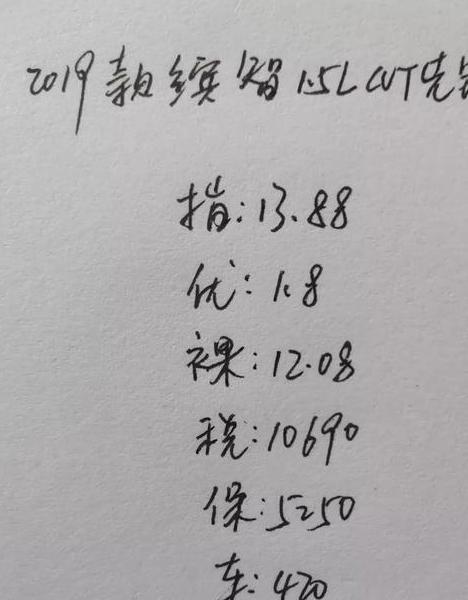 2019款缤智1.5L CVT先
指:13.88
优:1.8
裸:12.08
税:10690
保:5250
车:420